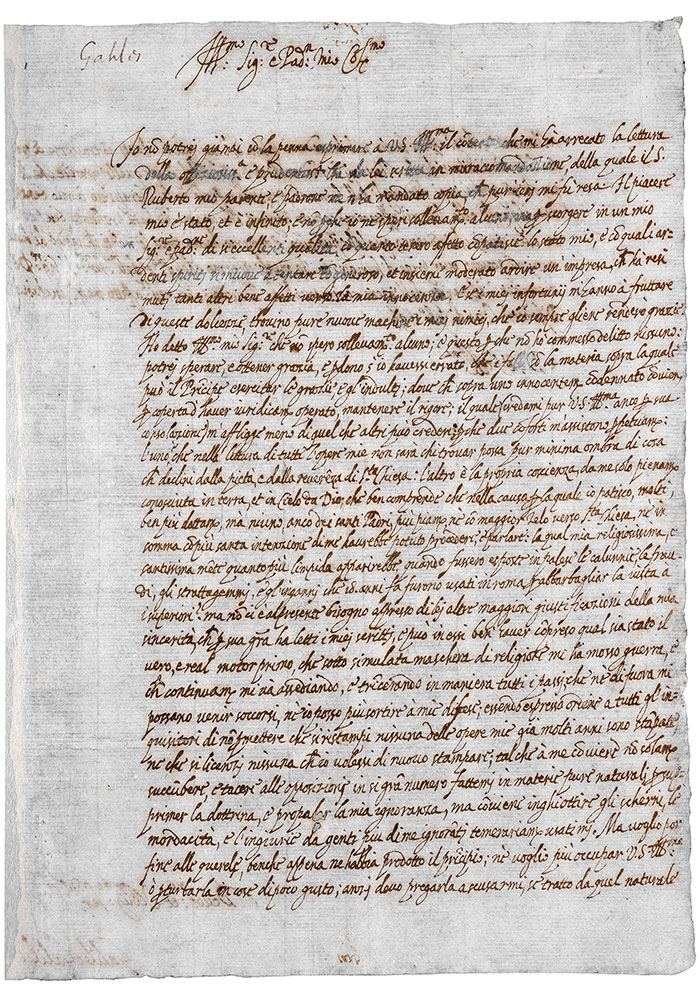 Galileo
Ill.mo Sig.re e Pad.n mio Col.mo
Io nõ potrei giamai cõ la penna esprimere à V. S. Ill.ma il cõtento che mi hà arrecato la lettura
della e prudentiss.a da lei scritta in mia raccomandatione della quale il S.
Ruberto mio parente e padrone mi ha mandato copia, ch pur ieri mi fu resa. Il piacere
mio è stato, et è infinito; e nõ pche io ne speri sollevam.to alcuno, ma p scorgere in un mio
Sig.re e pad.ne di sì eccellenti qualità cõ quanto tenero affetto cõpatisce lo stato mio, e cõ quali ar=
denti spiriti si muove à tentare cõ generoso, et insieme moderato ardire un impresa, ch ha resi
muti tanti altri bene affetti verso la mia innocenza. E se i miei infortunij m'hanno à fruttare
di queste dolcezze trovino pure nuove machine i miei nimici, che io sempre gliene renderò grazie.
Ho detto Ill.mo mio Sig.re che nõ spero sollevam.to alcuno; e questo p che nõ ho commesso delitto nissuno:
potrei sperare, e ottener grazia, e pdono s'io havessi errato, che i falli sõ la materia sopra la quale
può il Prĩcipe esercitar le grazie, e gl'indulti; dove ch sopra uno innocentem.te cõdennato cõvien,
p coperta d'haver iuridicam.te operato, mantenere il rigore; il quale (credami pur V. S. Ill.ma anco p sua
cõsolazione) m'affligge meno di quel che altri può credere; pche due cõforti mi assistono ppetuam.te:
l'uno, che nella lettura di tutte l'opere mie non sarà chi trovar possa pur minima ombra di cosa
ch declini dalla pietà, e dalla reverẽza di S.ta Chiesa: l'altro è la propria coscienza, da me solo pienam.te
conosciuta in terra, et in Cielo da Dio, che ben comprende che nella causa p la quale io patisco, molti
ben più dottam.te, ma niuno, anco dei Santi Padri, più piam.te, nè cõ maggior zelo verso S.ta Chiesa, nè in
somma cõ più santa intenzione di me havrebbe potuto procedere, e parlare: la qual mia religiosissima, e
santissima mẽte quanto più limpida apparirebbe quando fussero esposte in palese le calunnie, le frau
di, gli strattagemmi, e gl'inganni che 18 anni fa furono usati in roma p abbarbagliar la vista a
i superiori! ma nõ ci è al presente bisogno appresso di lei altre maggiori giustificazioni della mia
sincerità, ch p sua gra ha letti i miei scritti, e può in essi ben haver cõpreso qual sia stato il
vero, e real motor primo, che sotto simulata maschera di religione mi ha mosso guerra, e
ch continuam.te mi và assediando, e trĩcerando in maniera tutti i passi, che nè di fuora mi
possano venir soccorsi, nè io posso più sortire à mie difese; essendo espresso ordine à tutti gl'in=
quisitori di nõ pmettere che si ristampi nissuna delle opere mie già molti anni sono stãpate,
nè che si licenzij nissuna ch io volessi di nuovo stampare; tal che à me cõviene nõ solam.te
succũbere, e tacere alle opposizioni in sì gran numero fattemi in materie pure naturali p sup
primer la dottrina, e propalar la mia ignoranza, ma cõviene inghiottire gli scherni, le
mordacità, e l'ingiurie da genti più di me ignorãti temerariam.te usati mi. Ma voglio por
fine alle querele, benchè appena ne habbia prodotto il prĩcipio; nè voglio più occupar V. S. Ill.ma
ò pturbarla in cose di poco gusto; anzi devo pregarla à scusarmi, se tratto da quel naturale